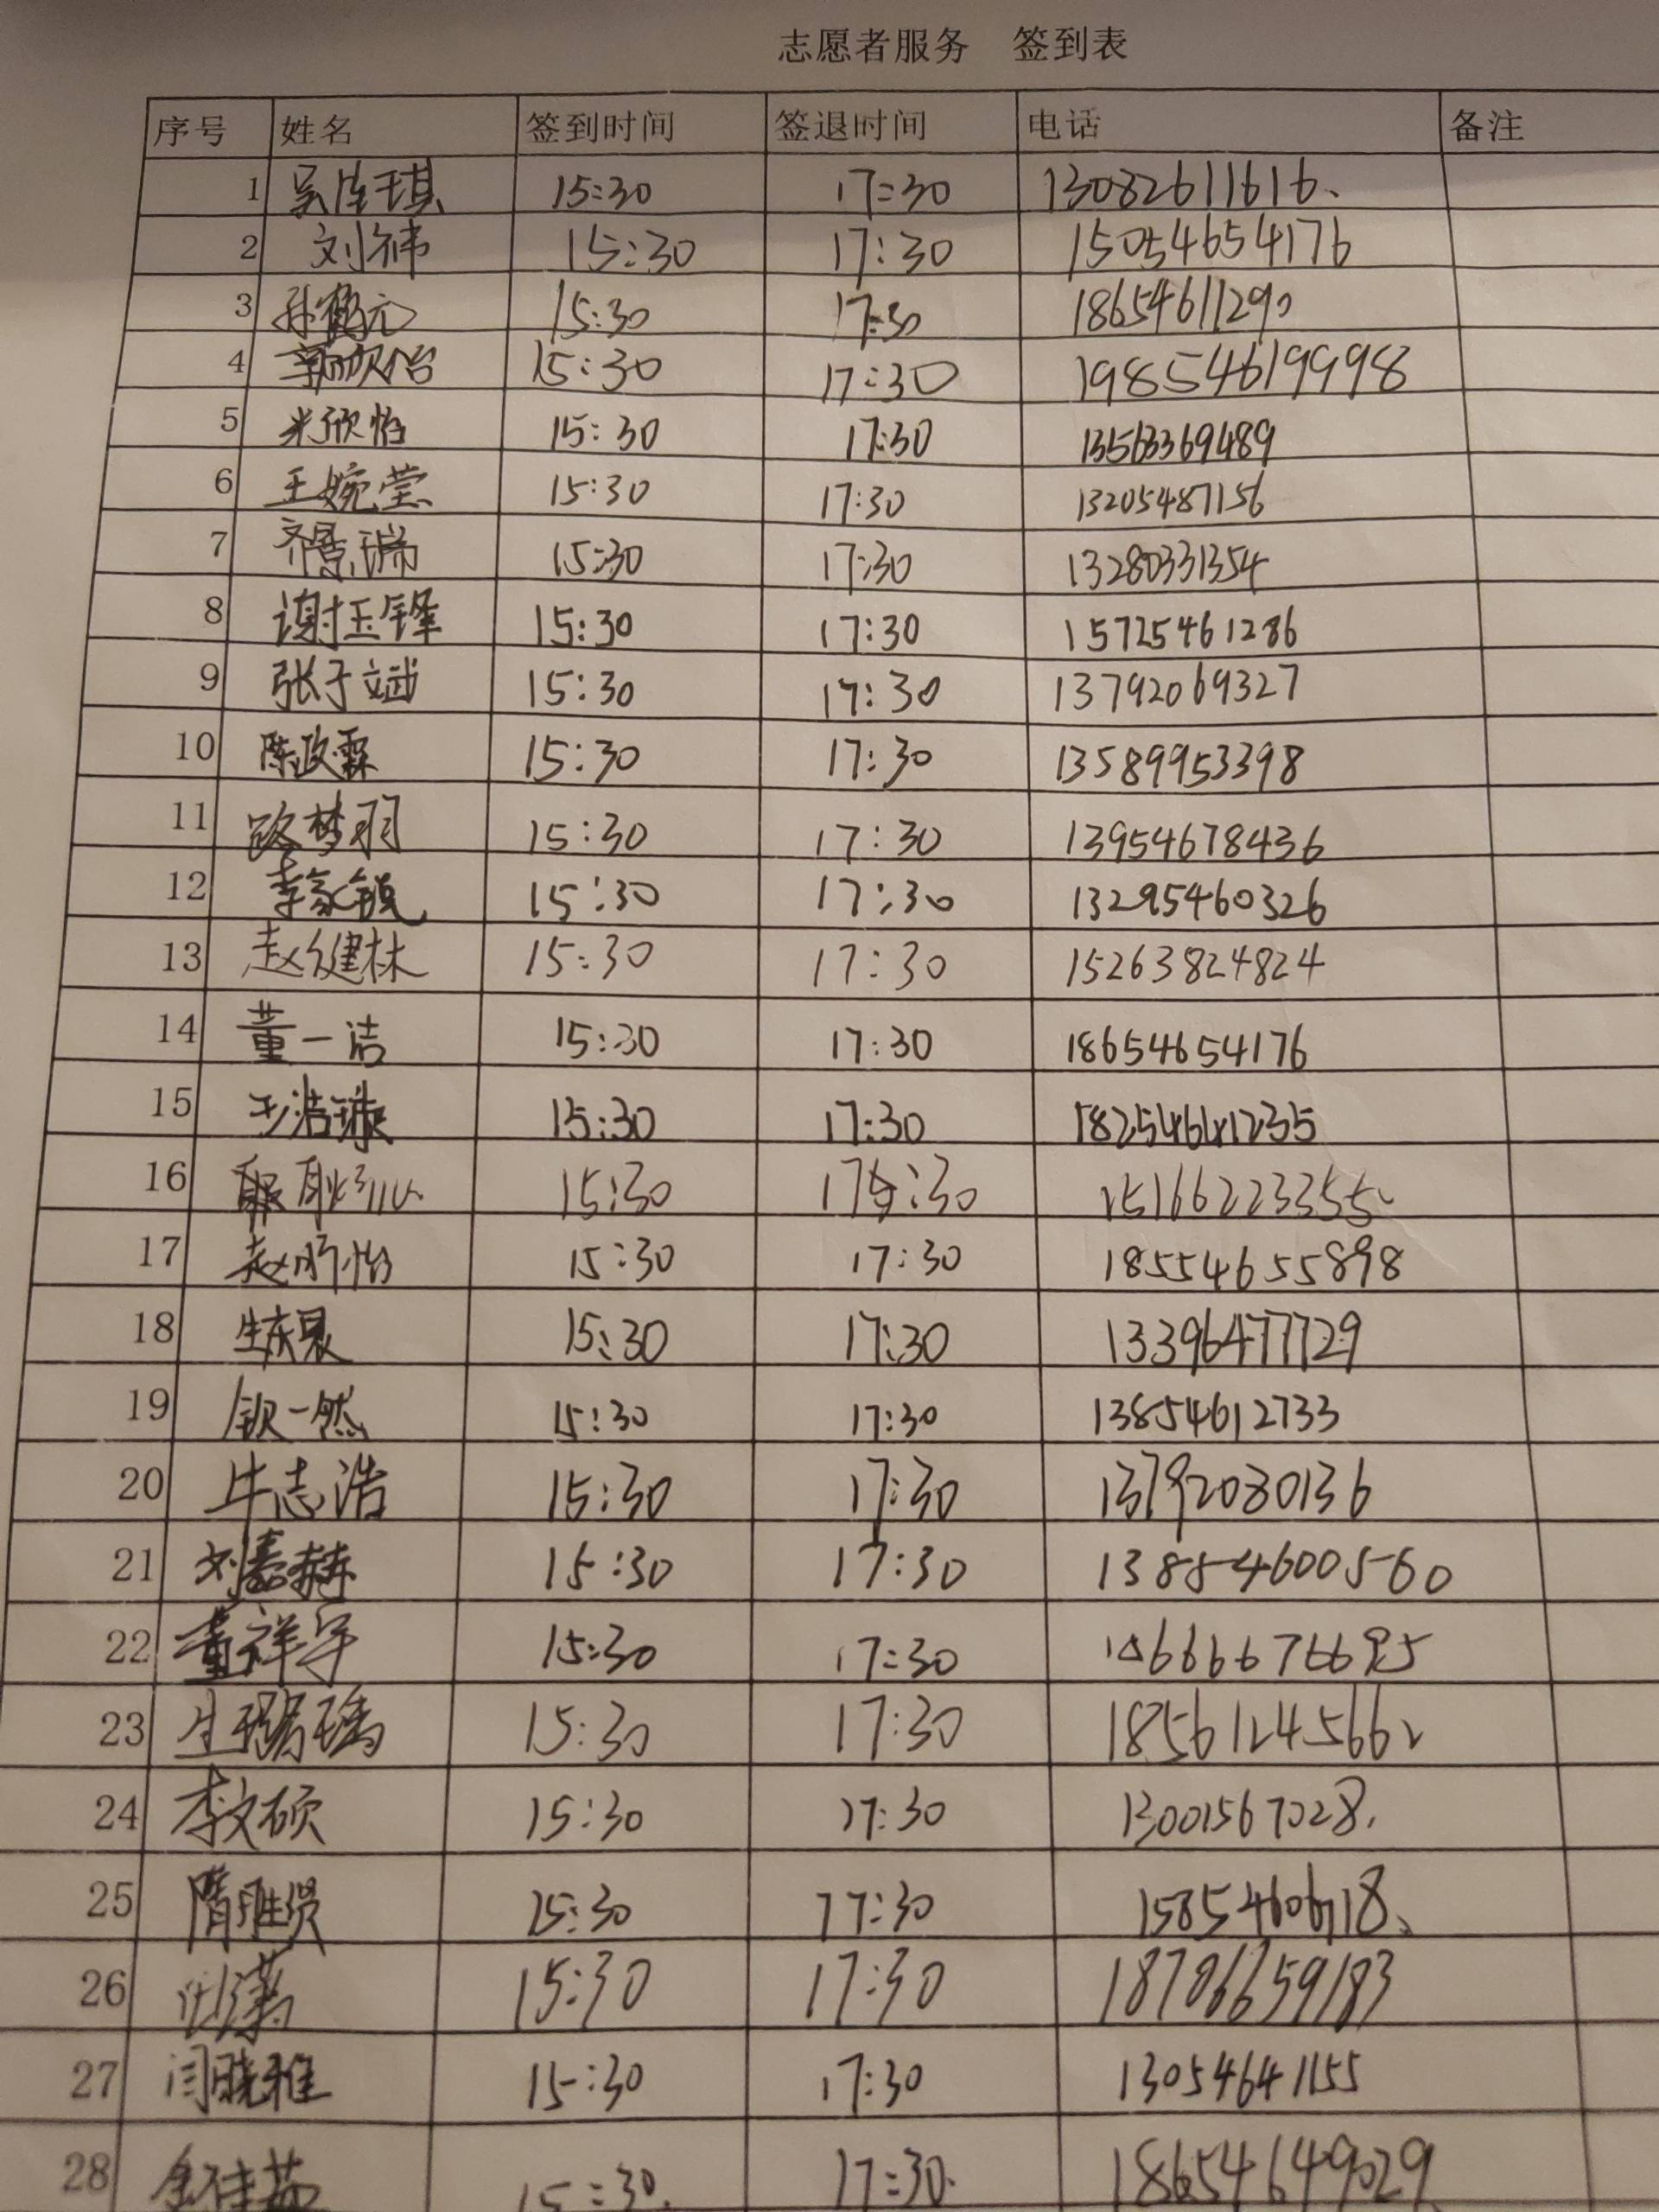 志愿者服务 签到表
序号 姓名 签到时间 签退时间 电话 备注
1 吴佳琪 15:30 17:30 13082611616.
2 刘祎 15:30 17:30 15054654176
3 孙鹤元 15:30 17:30 18654611290
4 15:30 17:30 198546199998
5 米欣怡 15:30 17:30 13563369489
6 王婉莹 15:30 17:30 13205487156
7 齐景瑞 15:30 17:30 13280331354
8 谢玉锋 15:30 17:30 15725461286
9 张子斌 15:30 17:30 13792069327
10 陈政霖 15:30 17:30 13589953398
11 路梦羽 15:30 17:30 13954678436
12 李家锐 15:30 17:30 13295460326
13 赵健林 15:30 17:30 15263824824
14 董一洁 15:30 17:30 18654654176
15 15:30 17:30
16 15:30 15166223355
17 赵昕怡 15:30 17:30 18554655898
18 生东泉 15:30 17:30 13396477729
19 钦一然 15:30 17:30 13854612733
20 牛志浩 15:30 17:30 13792080136
21 刘嘉赫 15:30 17:30 13854600560
22 董祥宇 15:30 17:30
23 15:30 17:30 18561245662
24 李文硕 15:30 17:30 13001567028.
25 15:30 17:30
26 15:30 17:30 18706659183
27 闫晓雅 15:30 17:30 13054641155
28 15:30. 17:30. 18654649029